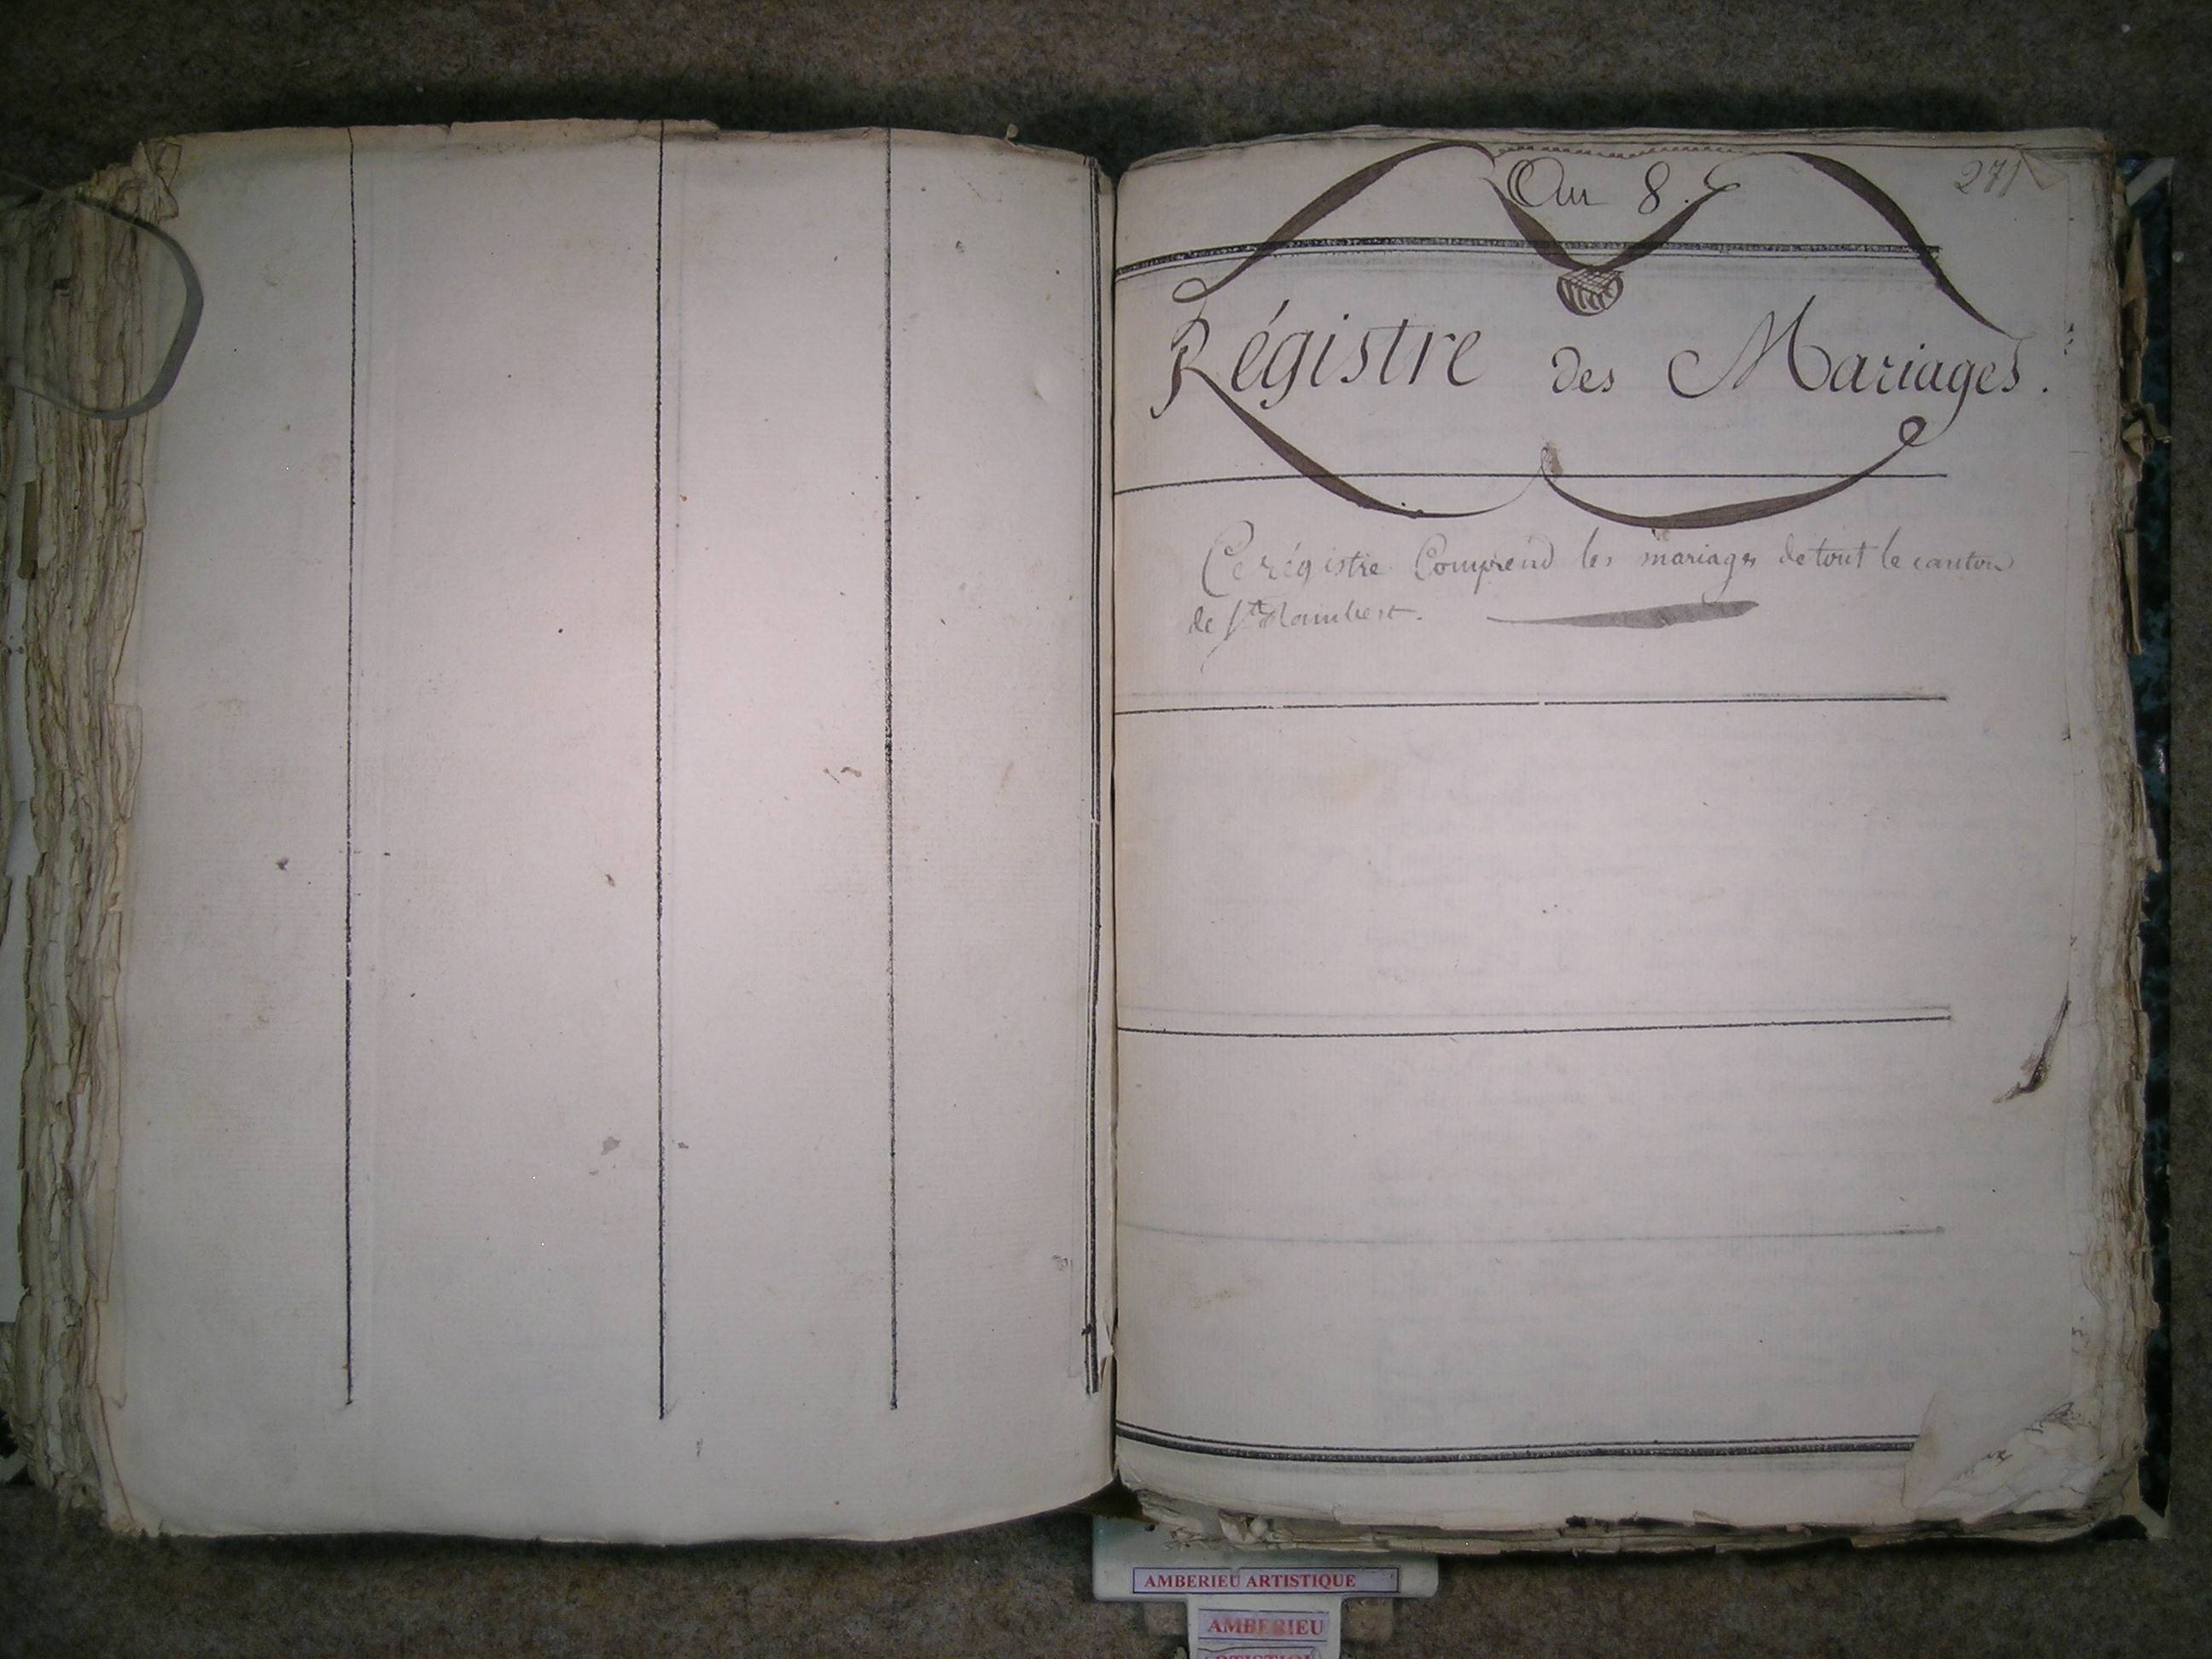 An 8.
271
Régistre des Mariages.
Ce régistre Comprend les mariages de tout le canton
de St Rambert.
AMBERIEU ARTISTIQUE
AMBERIEU
ARTISTIQUE